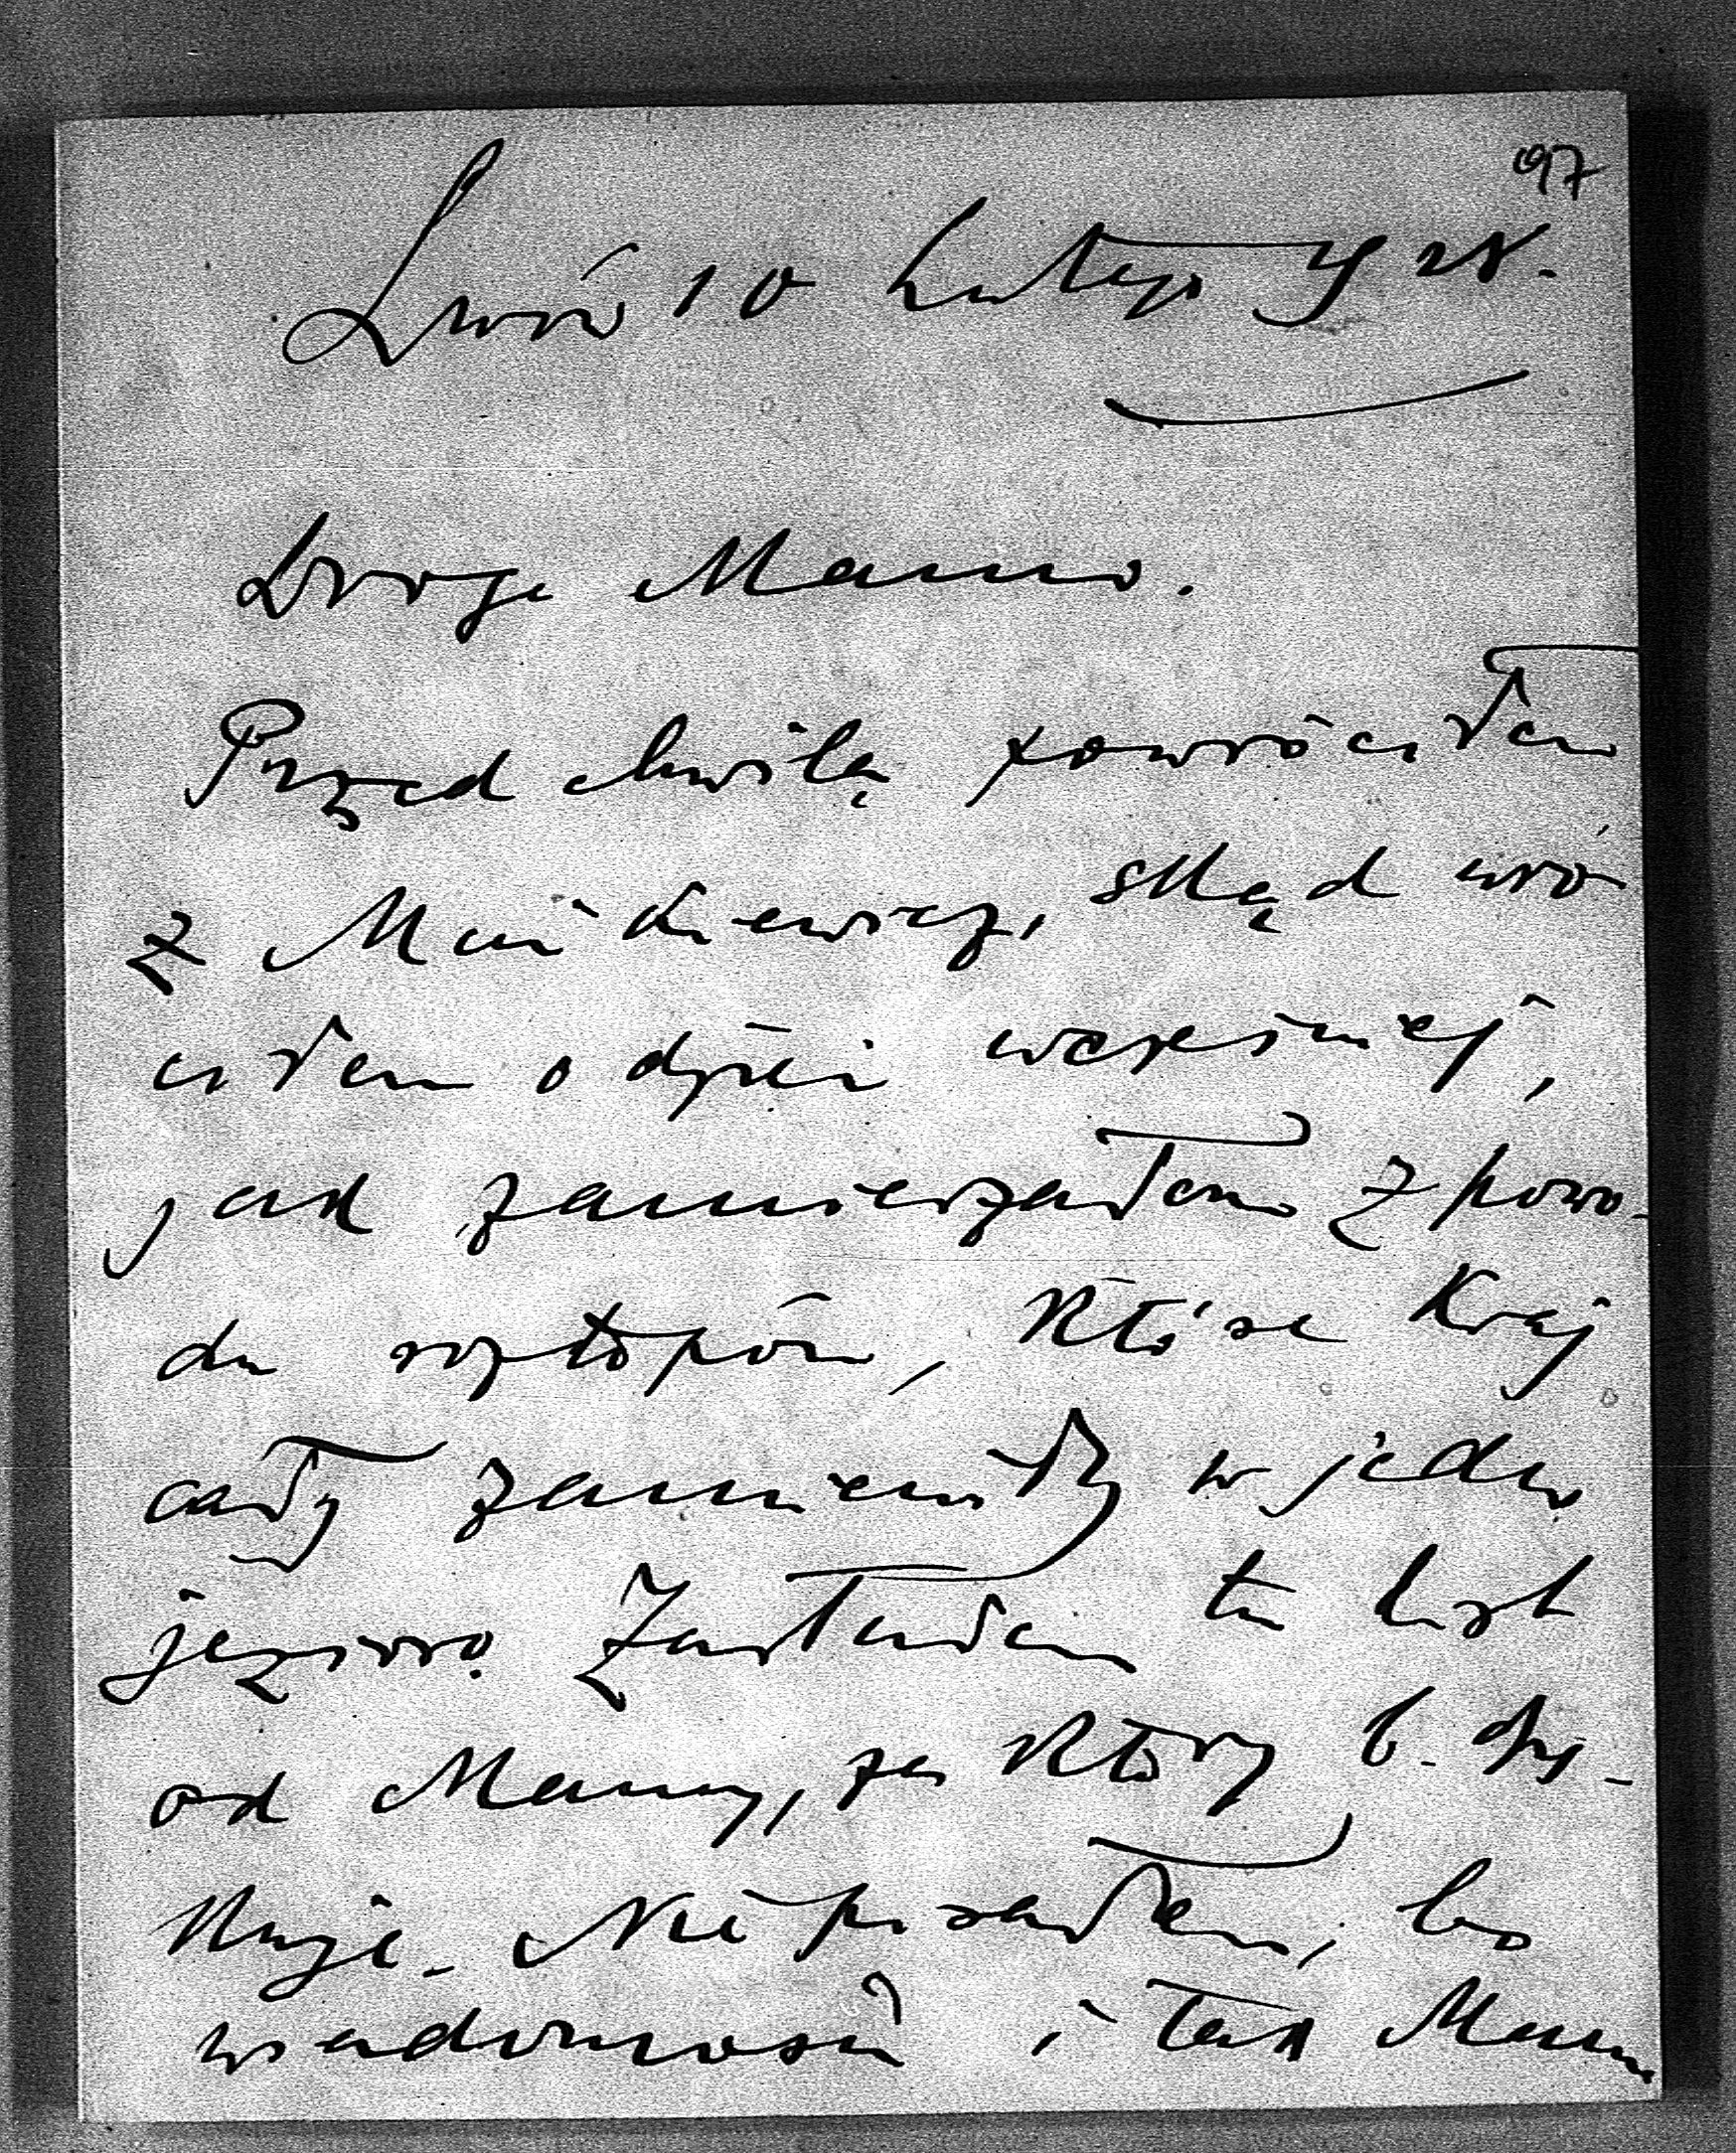 97
Lwów 10 Lutego 928.
Droga Mamo.
Przed chwilą powróciłem
z Mińkiewicz, skąd wró
ciłem o dzień wcześniej,
jak zamierzałem z powo-
du roztopów, które kraj
cały zamieniły w jedno
jezioro. Zastałem tu list
od Mamy, za który b. dzię-
kuję. Nie pisałem, bo
wiadomości i tak Mama